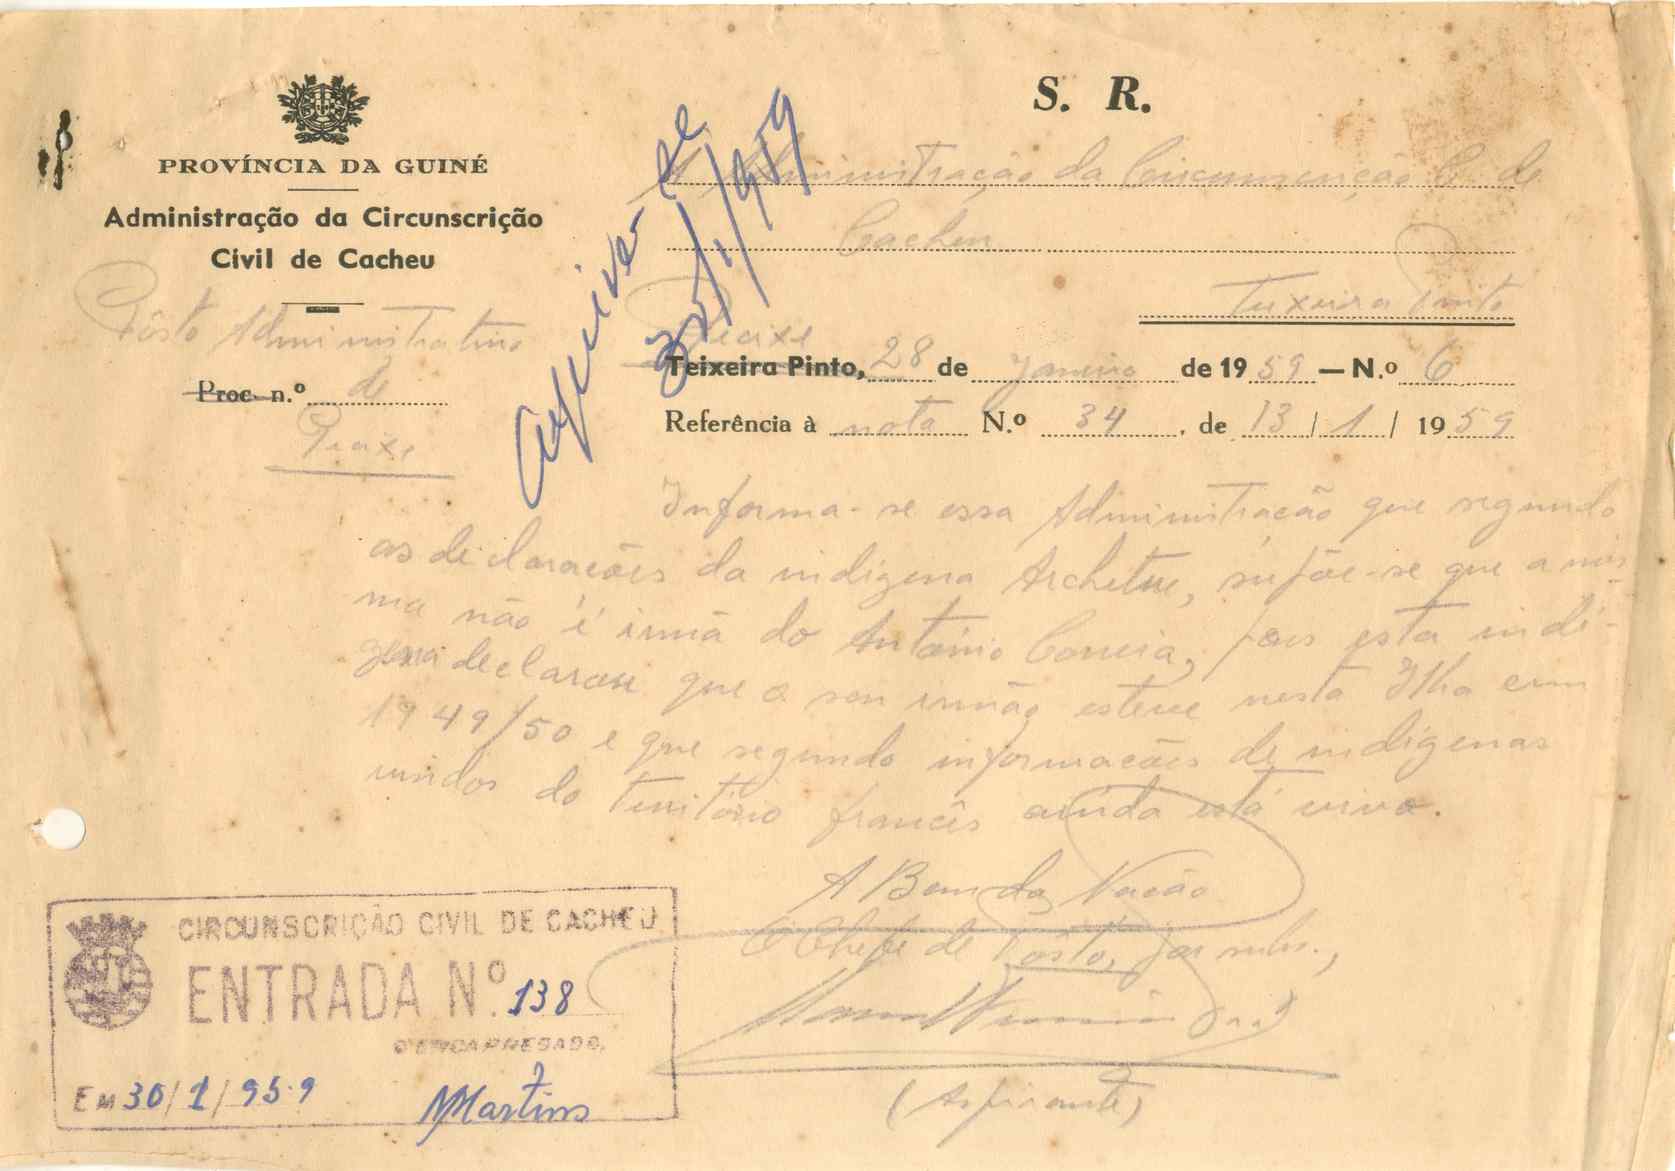 S. R.
PROVÍNCIA DA GUINÉ
Administração da Circunscrição
Civil de Cacheu
Pôsto Administrativo
Proc. n.º de
Arquive-se
À Administração da Circunscrição C. de
Cacheu
Teixeira Pinto
Teixeira Pinto, 28 de Janeiro de 1959 — N.º 6
Referência à nota N.º 34, de 13/1/1959
Informa-se essa Administração que segundo
as declarações da indígena, supõe-se que a mes-
ma não é irmã do António Correia, pois esta indí-
gena declarou que o seu irmão esteve nesta Ilha em
1949/50 e que segundo informações de indígenas
vindos do território francês ainda está vivo.
A Bem da Nação
O Chefe de Pôsto, por subs.,
(Aspirante)
CIRCUNSCRIÇÃO CIVIL DE CACHEU
ENTRADA N.º 138
O ENCARREGADO,
EM 30/1/959
MMartins